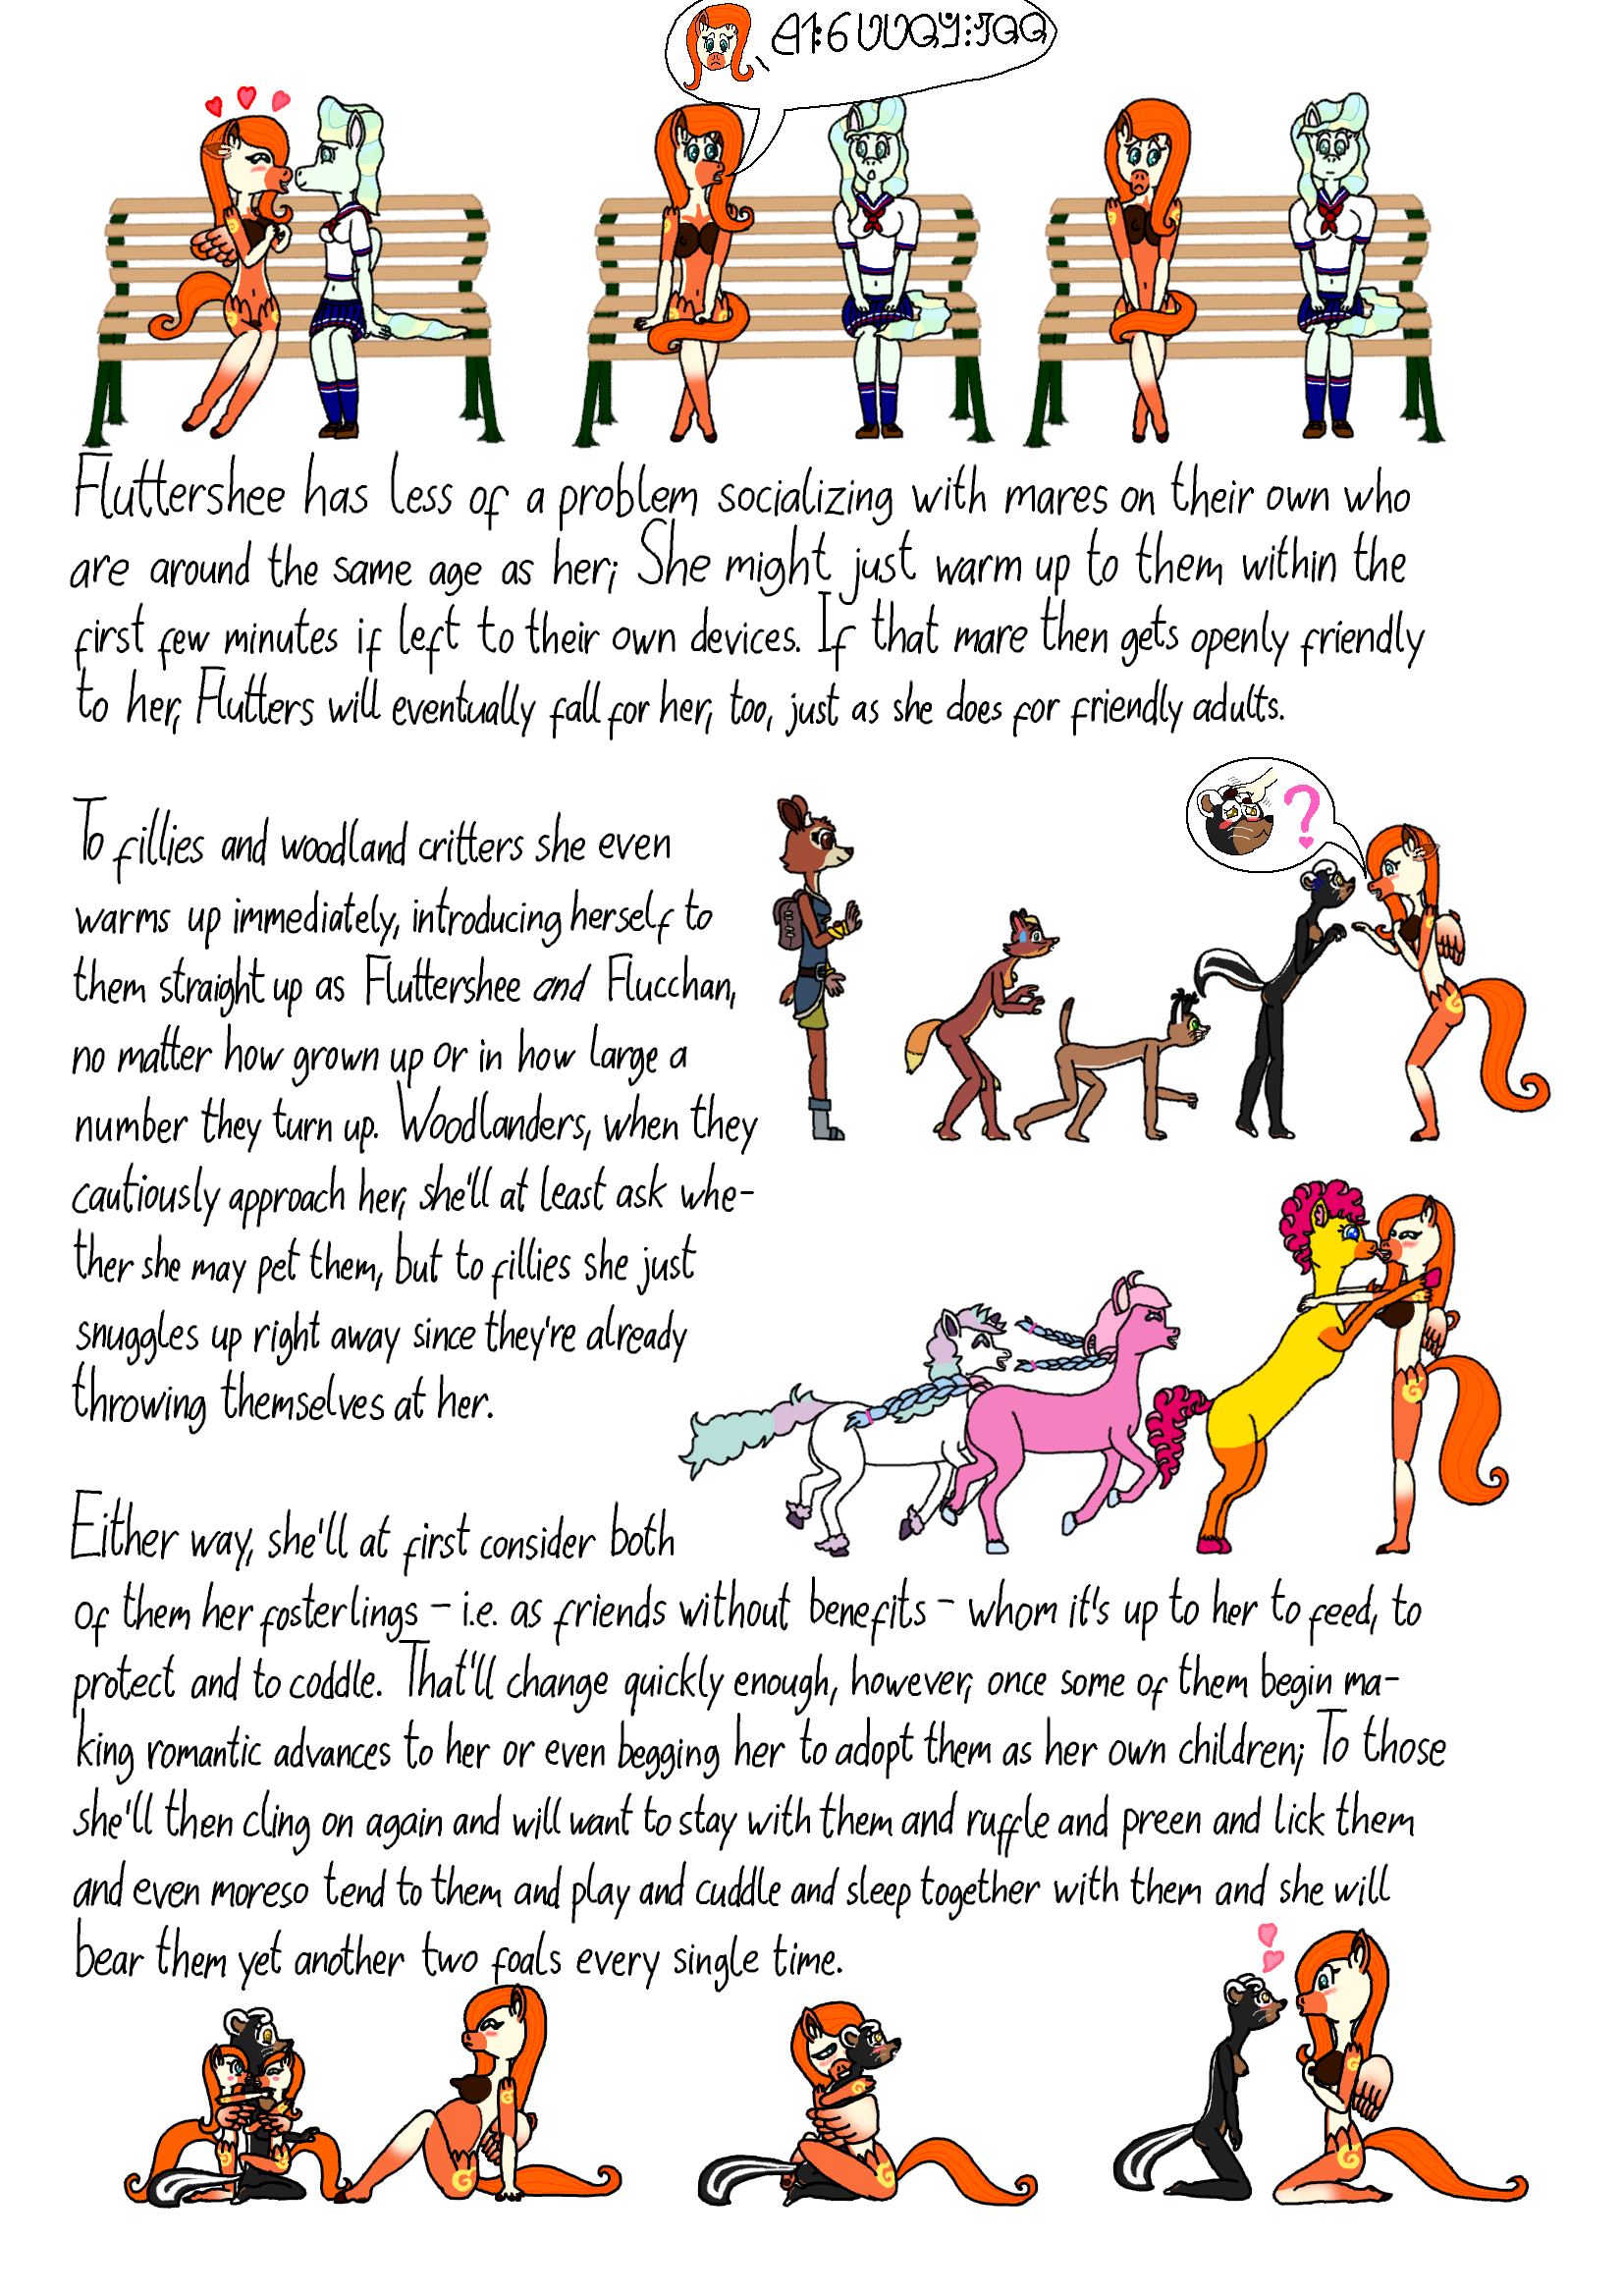 Fluttershee has less of a problem socializing with mares on their own who
are around the same age as her; She might just warm up to them within the
first few minutes if left to their own devices. If that mare then gets openly friendly
to her, Flutters will eventually fall for her, too, just as she does for friendly adults.
To fillies and woodland critters she even
warms up immediately, introducing herself to
them straight up as Fluttershee and Flucchan,
no matter how grown up or in how large a
number they turn up. Woodlanders, when they
cautiously approach her, she'll at least ask whe-
ther she may pet them, but to fillies she just
snuggles up right away since they're already
throwing themselves at her.
Either way, she'll at first consider both
of them her fosterlings – i.e. as friends without benefits – whom it's up to her to feed, to
protect and to coddle. That'll change quickly enough, however, once some of them begin ma-
king romantic advances to her or even begging her to adopt them as her own children; To those
she'll then cling on again and will want to stay with them and ruffle and preen and lick them
and even moreso tend to them and play and cuddle and sleep together with them and she will
bear them yet another two foals every single time.